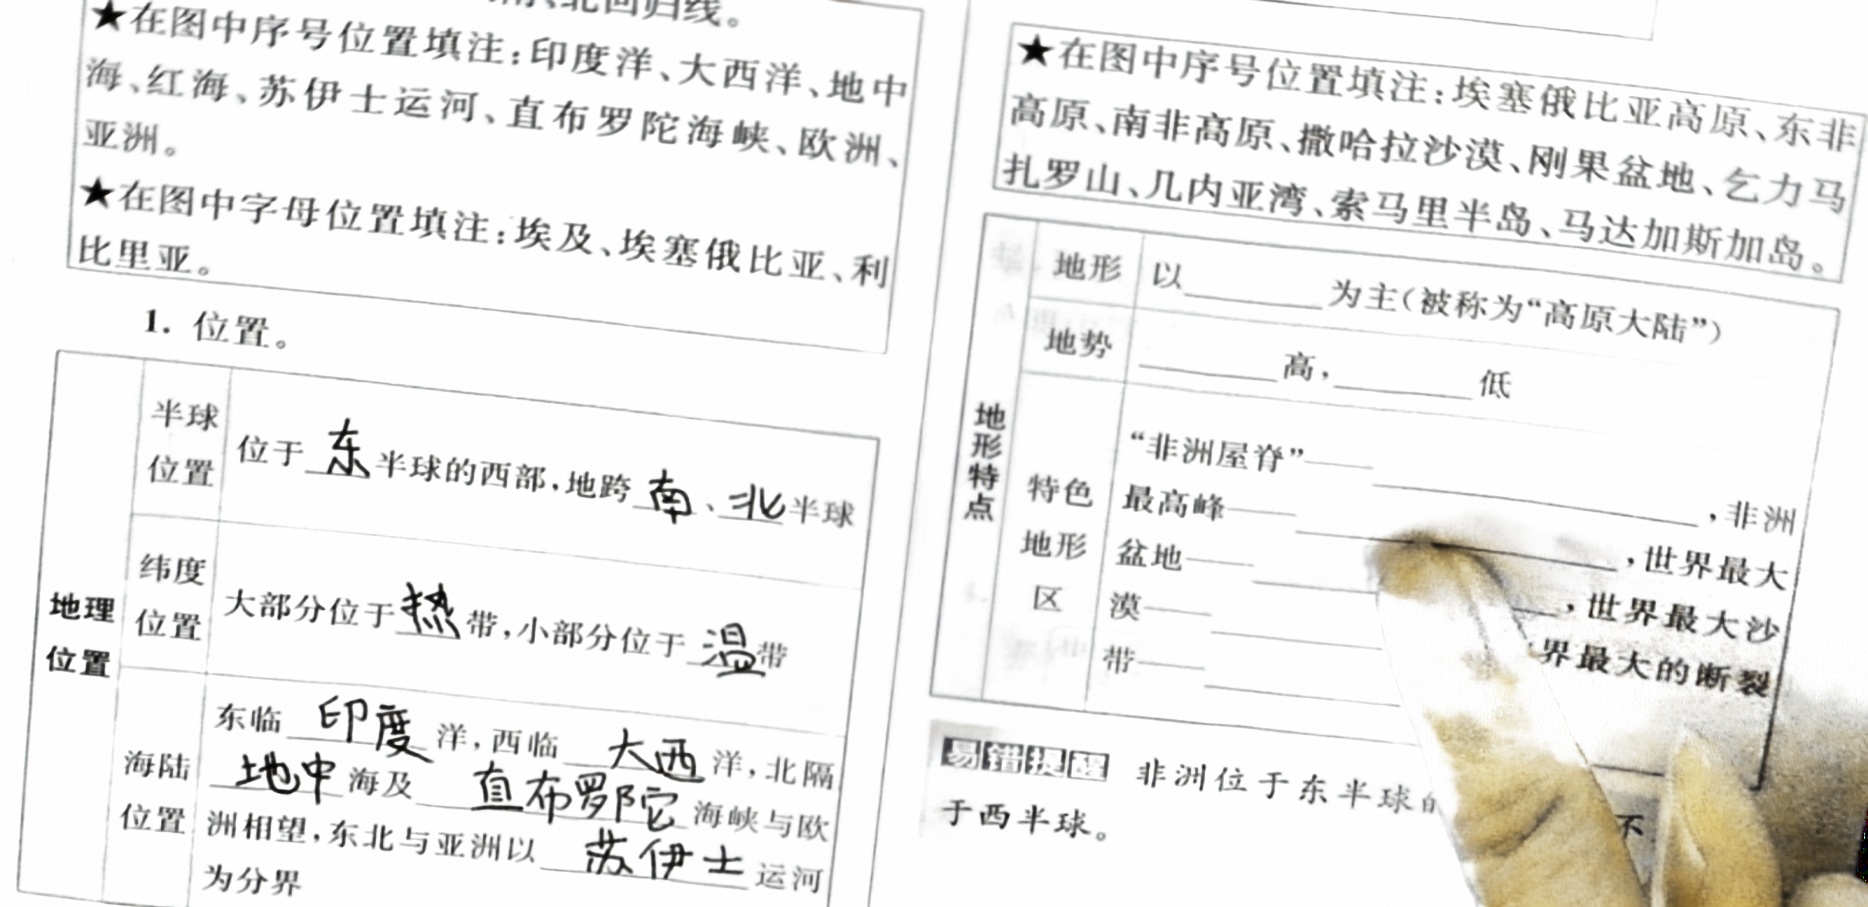 北回归线。
★在图中序号位置填注:印度洋、大西洋、地中
海、红海、苏伊士运河、直布罗陀海峡、欧洲、
亚洲。
★在图中字母位置填注:埃及、埃塞俄比亚、利
比里亚。
1. 位置。
地理
位置
半球
位置
位于东半球的西部,地跨南、北半球
纬度
位置
大部分位于热带,小部分位于温带
海陆
位置
东临印度洋,西临大西洋,北隔
地中海及直布罗陀海峡与欧
洲相望,东北与亚洲以苏伊士运河
为分界
★在图中序号位置填注:埃塞俄比亚高原、东非
高原、南非高原、撒哈拉沙漠、刚果盆地、乞力马
扎罗山、几内亚湾、索马里半岛、马达加斯加岛。
地形特点
地形
以______为主(被称为“高原大陆”)
地势
______高,______低
特色
地形
区
“非洲屋脊”——______,非洲
最高峰——______,世界最大
盆地——______,世界最大沙
漠——______界最大的断裂
带——______
易错提醒 非洲位于东半球的
不
于西半球。